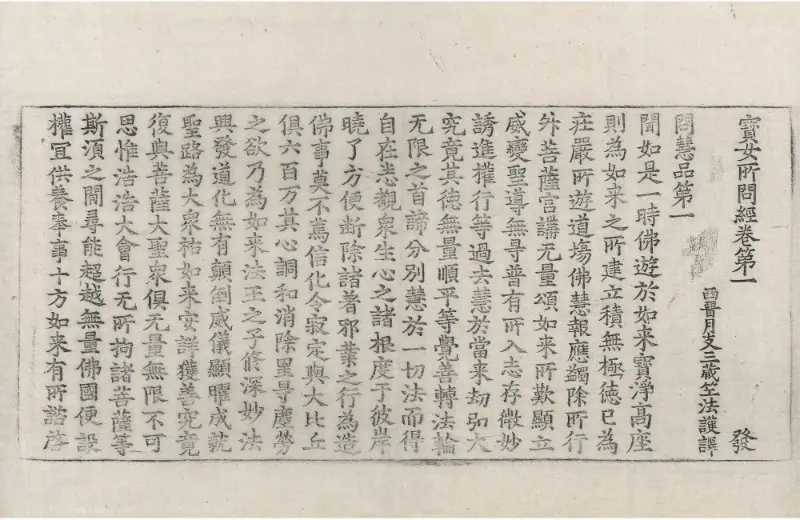 寳女所問經卷第一 發
西晉月支三藏竺法護譯
問慧品第一
聞如是一時佛遊於如来寳淨髙座
則為如来之所建立積無極徳已為
莊嚴所遊道塲佛慧報應蠲除所行
外菩薩宫講无量頌如来所歎顯立
威變聖導無㝵普有所入志存微妙
誘進權行等過去慧於當来劫弘大
究竟其徳無量順平等覺善轉法輪
无限之首諦分別慧於一切法而得
自在悉觀衆生心之諸根度于彼岸
曉了方便断除諸著邪業之行為造
佛事莫不篤信化令寂定與大比丘
俱六百万其心調和消除罣㝵塵勞
之欲乃為如来法王之子修深妙法
興發道化無有顛倒威儀顯曜成就
聖路為大衆祐如来安詳獲善究竟
復與菩薩大聖衆俱无量無限不可
思惟浩浩大會行无所拘諸菩薩等
斯湏之閒尋能超越無量佛國便設
權宜供養奉事十方如来有所諮啓